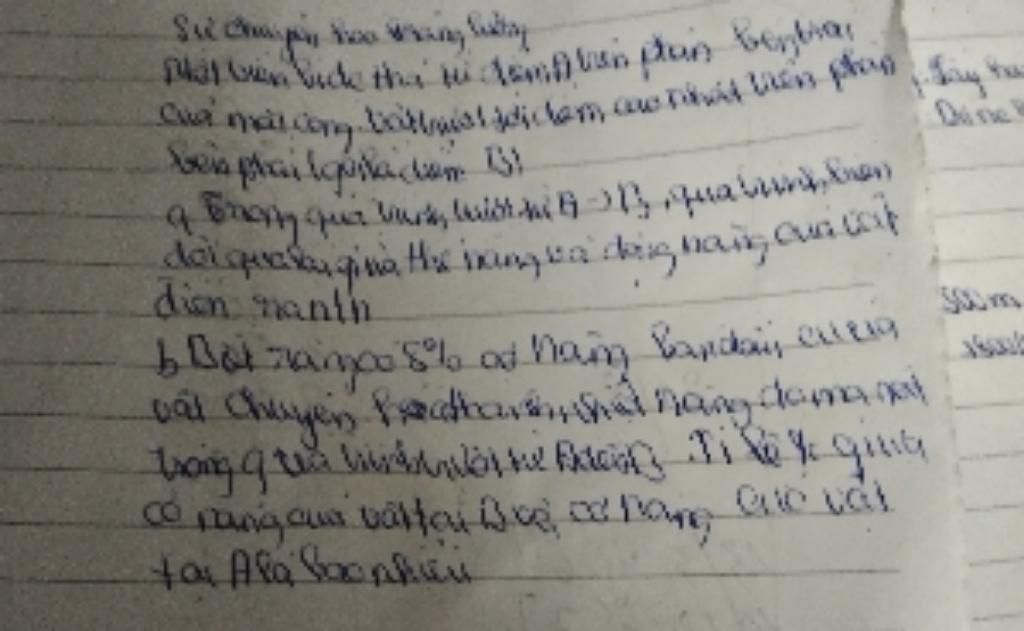 Sự chuyển hóa năng lượng
Một viên bi được thả từ điểm A trên phần bên trái
của máng cong. Vật trượt tới điểm cao nhất trên phần
bên phải (gọi là điểm B)
a Trong quá trình trượt từ A -> B, quá trình biến
đổi qua lại giữa thế năng và động năng của vật
diễn ra
b Biết rằng có 5% cơ năng ban đầu của
vật chuyển hóa thành nhiệt năng do ma sát
trong quá trình trượt từ A đến B. Tỉ lệ % giữa
cơ năng của vật tại B và cơ năng của vật
tại A là bao nhiêu
500m